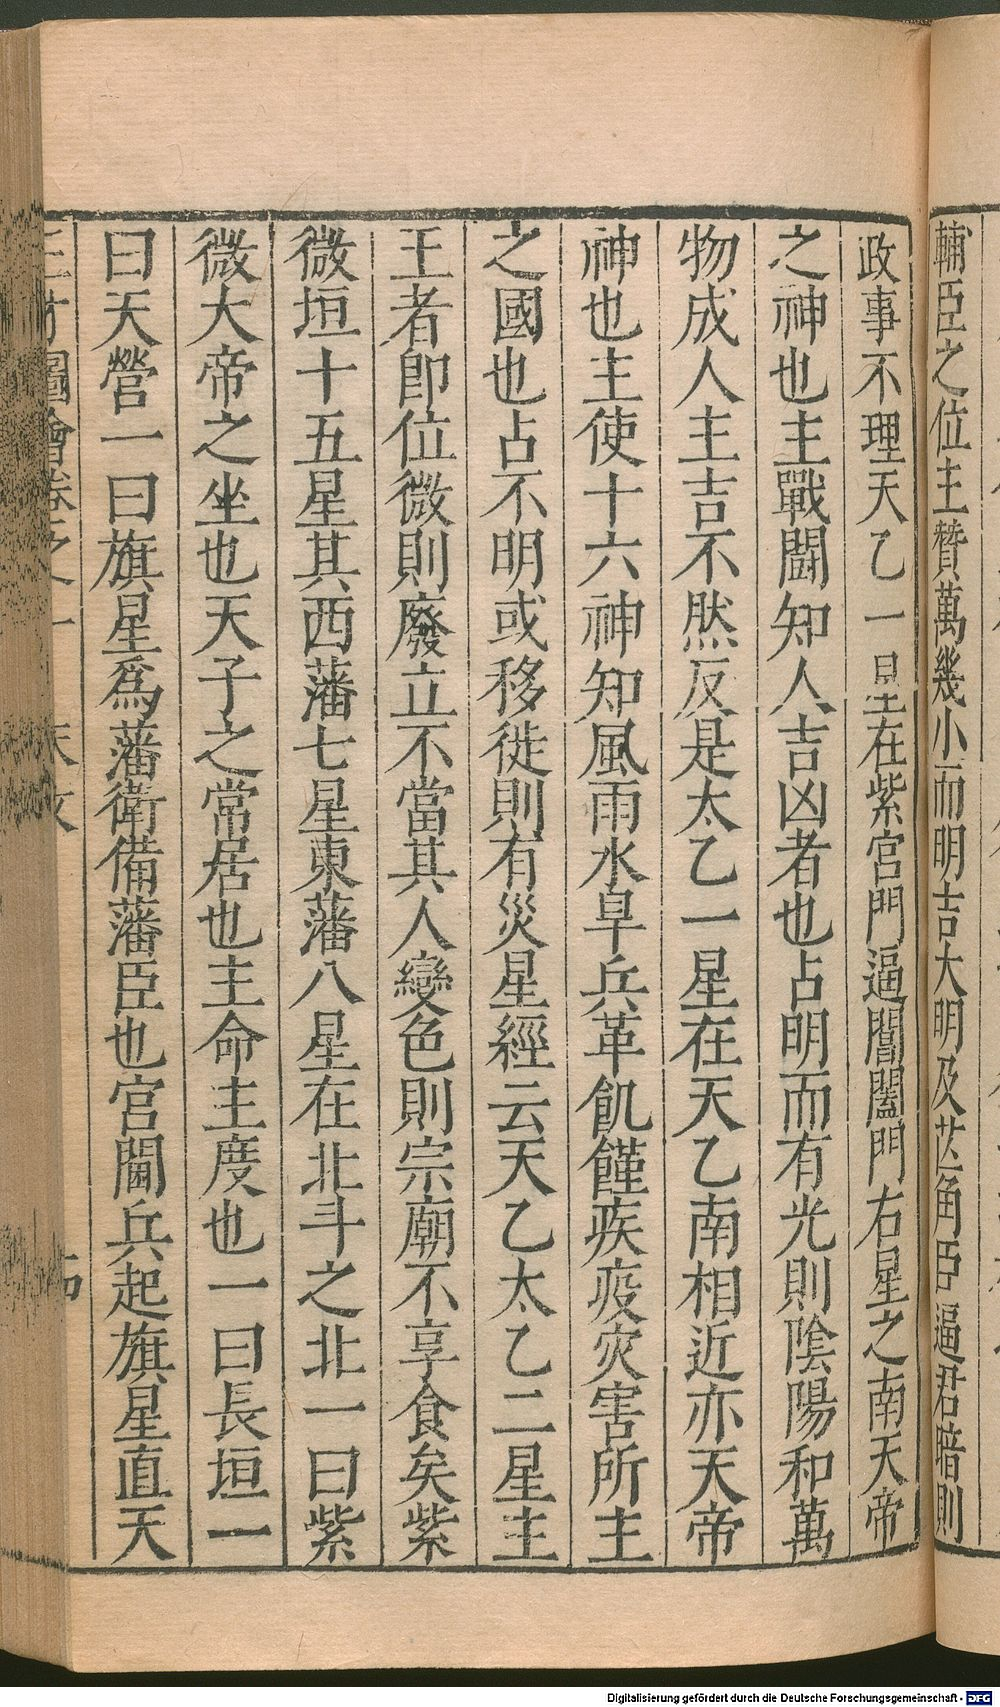 輔臣之位主贊萬幾小而明吉大明及芒角臣逼君暗則
政事不理天乙一星在紫宮門逼閶闔門右星之南天帝
之神也主戰鬪知人吉凶者也占明而有光則陰陽和萬
物成人主吉不然反是太乙一星在天乙南相近亦天帝
神也主使十六神知風雨水旱兵革飢饉疾疫灾害所主
之國也占不明或移徙則有災星經云天乙太乙二星主
王者卽位微則廢立不當其人變色則宗廟不享食矣紫
微垣十五星其西藩七星東藩八星在北斗之北一曰紫
微大帝之坐也天子之常居也主命主度也一曰長垣一
曰天營一曰旗星爲藩衛備藩臣也宮闕兵起旗星直天
三才圖會卷之一 天文
Digitalisierung gefördert durch die Deutsche Forschungsgemeinschaft - DFG